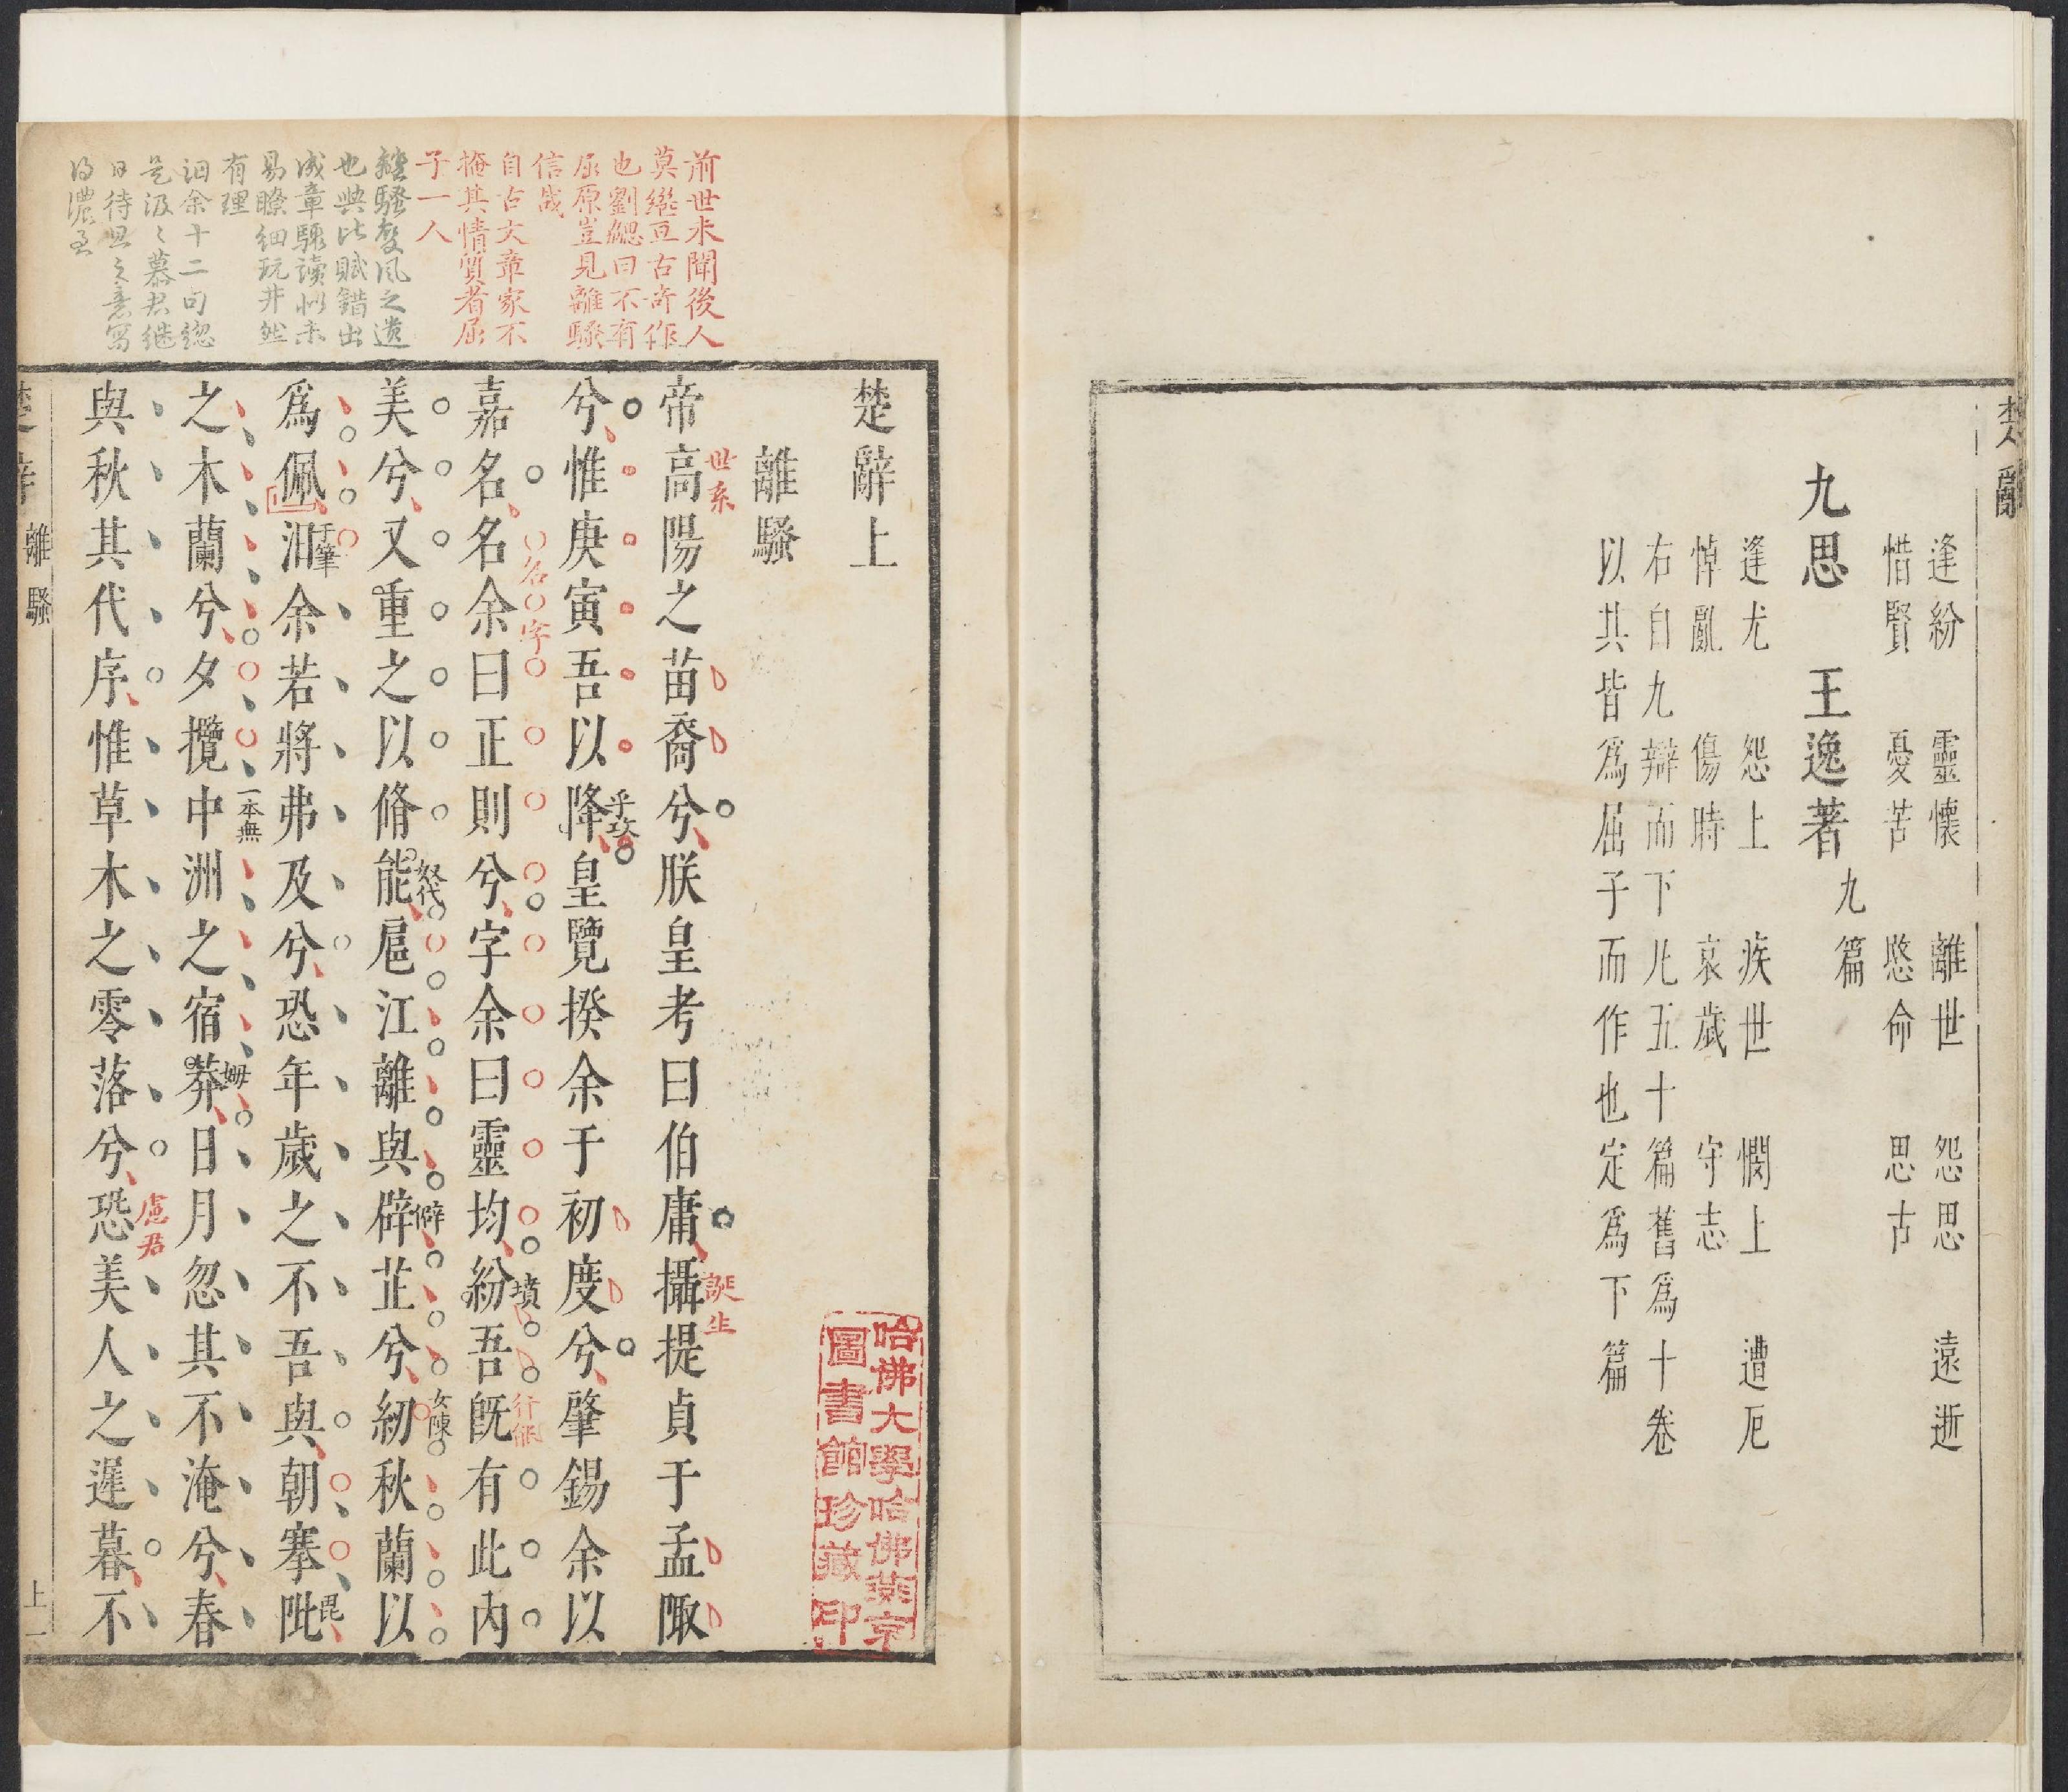 楚辭
逢紛　靈懷　離世　怨思　遠逝
惜賢　憂苦　愍命　思古
九思　王逸著　九篇
逢尤　怨上　疾世　憫上　遭厄
悼亂　傷時　哀歲　守志
右自九辯而下凡五十篇舊爲十卷
以其皆爲屈子而作也定爲下篇
前世未聞後人
莫繼亘古奇作
也劉勰曰不有
屈原豈見離騷
信哉
自古文章家不
掩其情質者屈
子一人
離騷變風之遺
也興比賦錯出
成章驟讀似未
易瞭細玩井然
有理
汩余十二句總
是汲汲慕君繼
日待旦之意寫
得濃至
楚辭上
離騷
世系
帝高陽之苗裔兮朕皇考曰伯庸攝提貞于孟陬
誕生
兮惟庚寅吾以降皇覽揆余于初度兮肇錫余以
乎攻
嘉名名余曰正則兮字余曰靈均紛吾旣有此內
名字
墳
行能
美兮又重之以脩能扈江離與辟芷兮紉秋蘭以
奴代
僻
女陳
爲佩汨余若將弗及兮恐年歲之不吾與朝搴阰
于筆
毘
之木蘭兮夕攬中洲之宿莽日月忽其不淹兮春
一本無
姆
與秋其代序惟草木之零落兮恐美人之遲暮不
慮君
楚辭　離騷　上　一
哈佛大學哈佛燕京
圖書館珍藏印